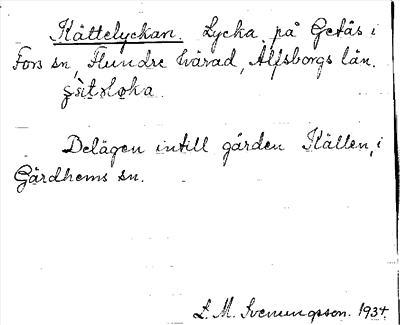 Kättelyckan. Lycka på Getås i
Fors sn, Flundre härad, Älfsborgs län.
Delägen intill gården Källen, i
Gärdhems sn.
L. M. Svenungsson. 1934.